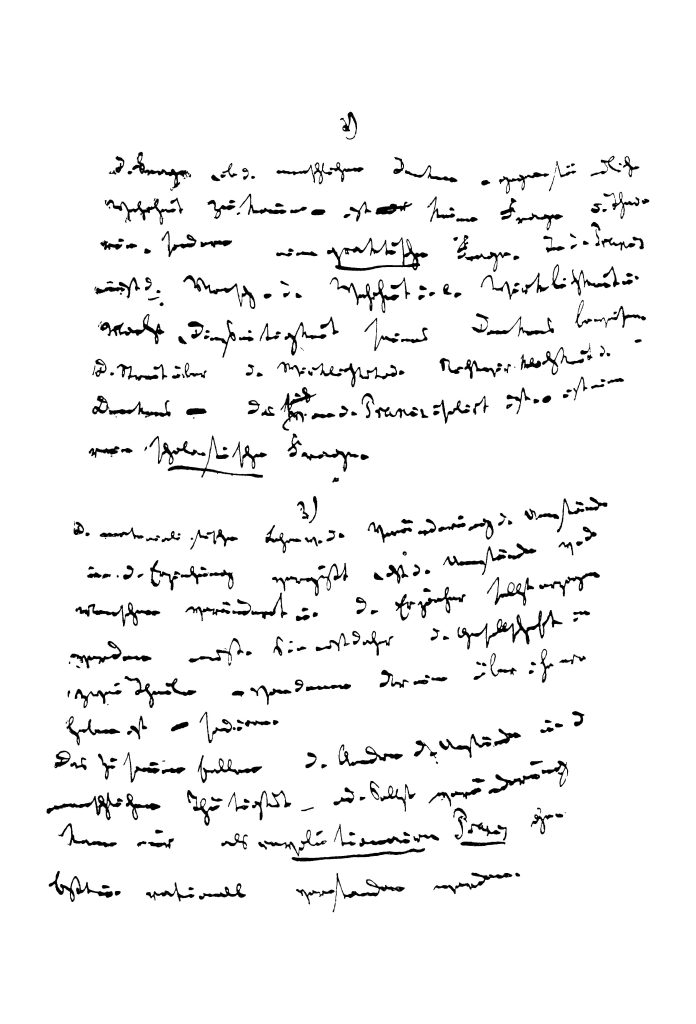 2)
D. Frage, ob d. menschlichen Denken – gegenständliche
Wahrheit zukomme – ist keine Frage d. Theo-
rie, sondern eine praktische Frage. In d. Praxis
muß d. Mensch d. Wahrheit i. e. Wirklichkeit u.
Macht, Diesseitigkeit seines Denkens beweisen.
D. Streit über d. Wirklichkeit od. Nichtwirklichkeit d.
Denkens – das von d. Praxis isolirt ist – ist eine
rein scholastische Frage.
3)
D. materialistische Lehre v. d. Veränderung d. Umstände
u. d. Erziehung vergißt, daß d. Umstände v. d.
Menschen verändert u. d. Erzieher selbst erzogen
werden muß. Sie muß daher d. Gesellschaft in
zwei Theile – von denen der eine über ihr er
haben ist – sondiren.
Das Zusammenfallen d. Ändern d. Umstände u. d.
menschlichen Thätigkeit od. Selbstveränderung
kann nur als revolutionäre Praxis ge-
faßt u. rationell verstanden werden.